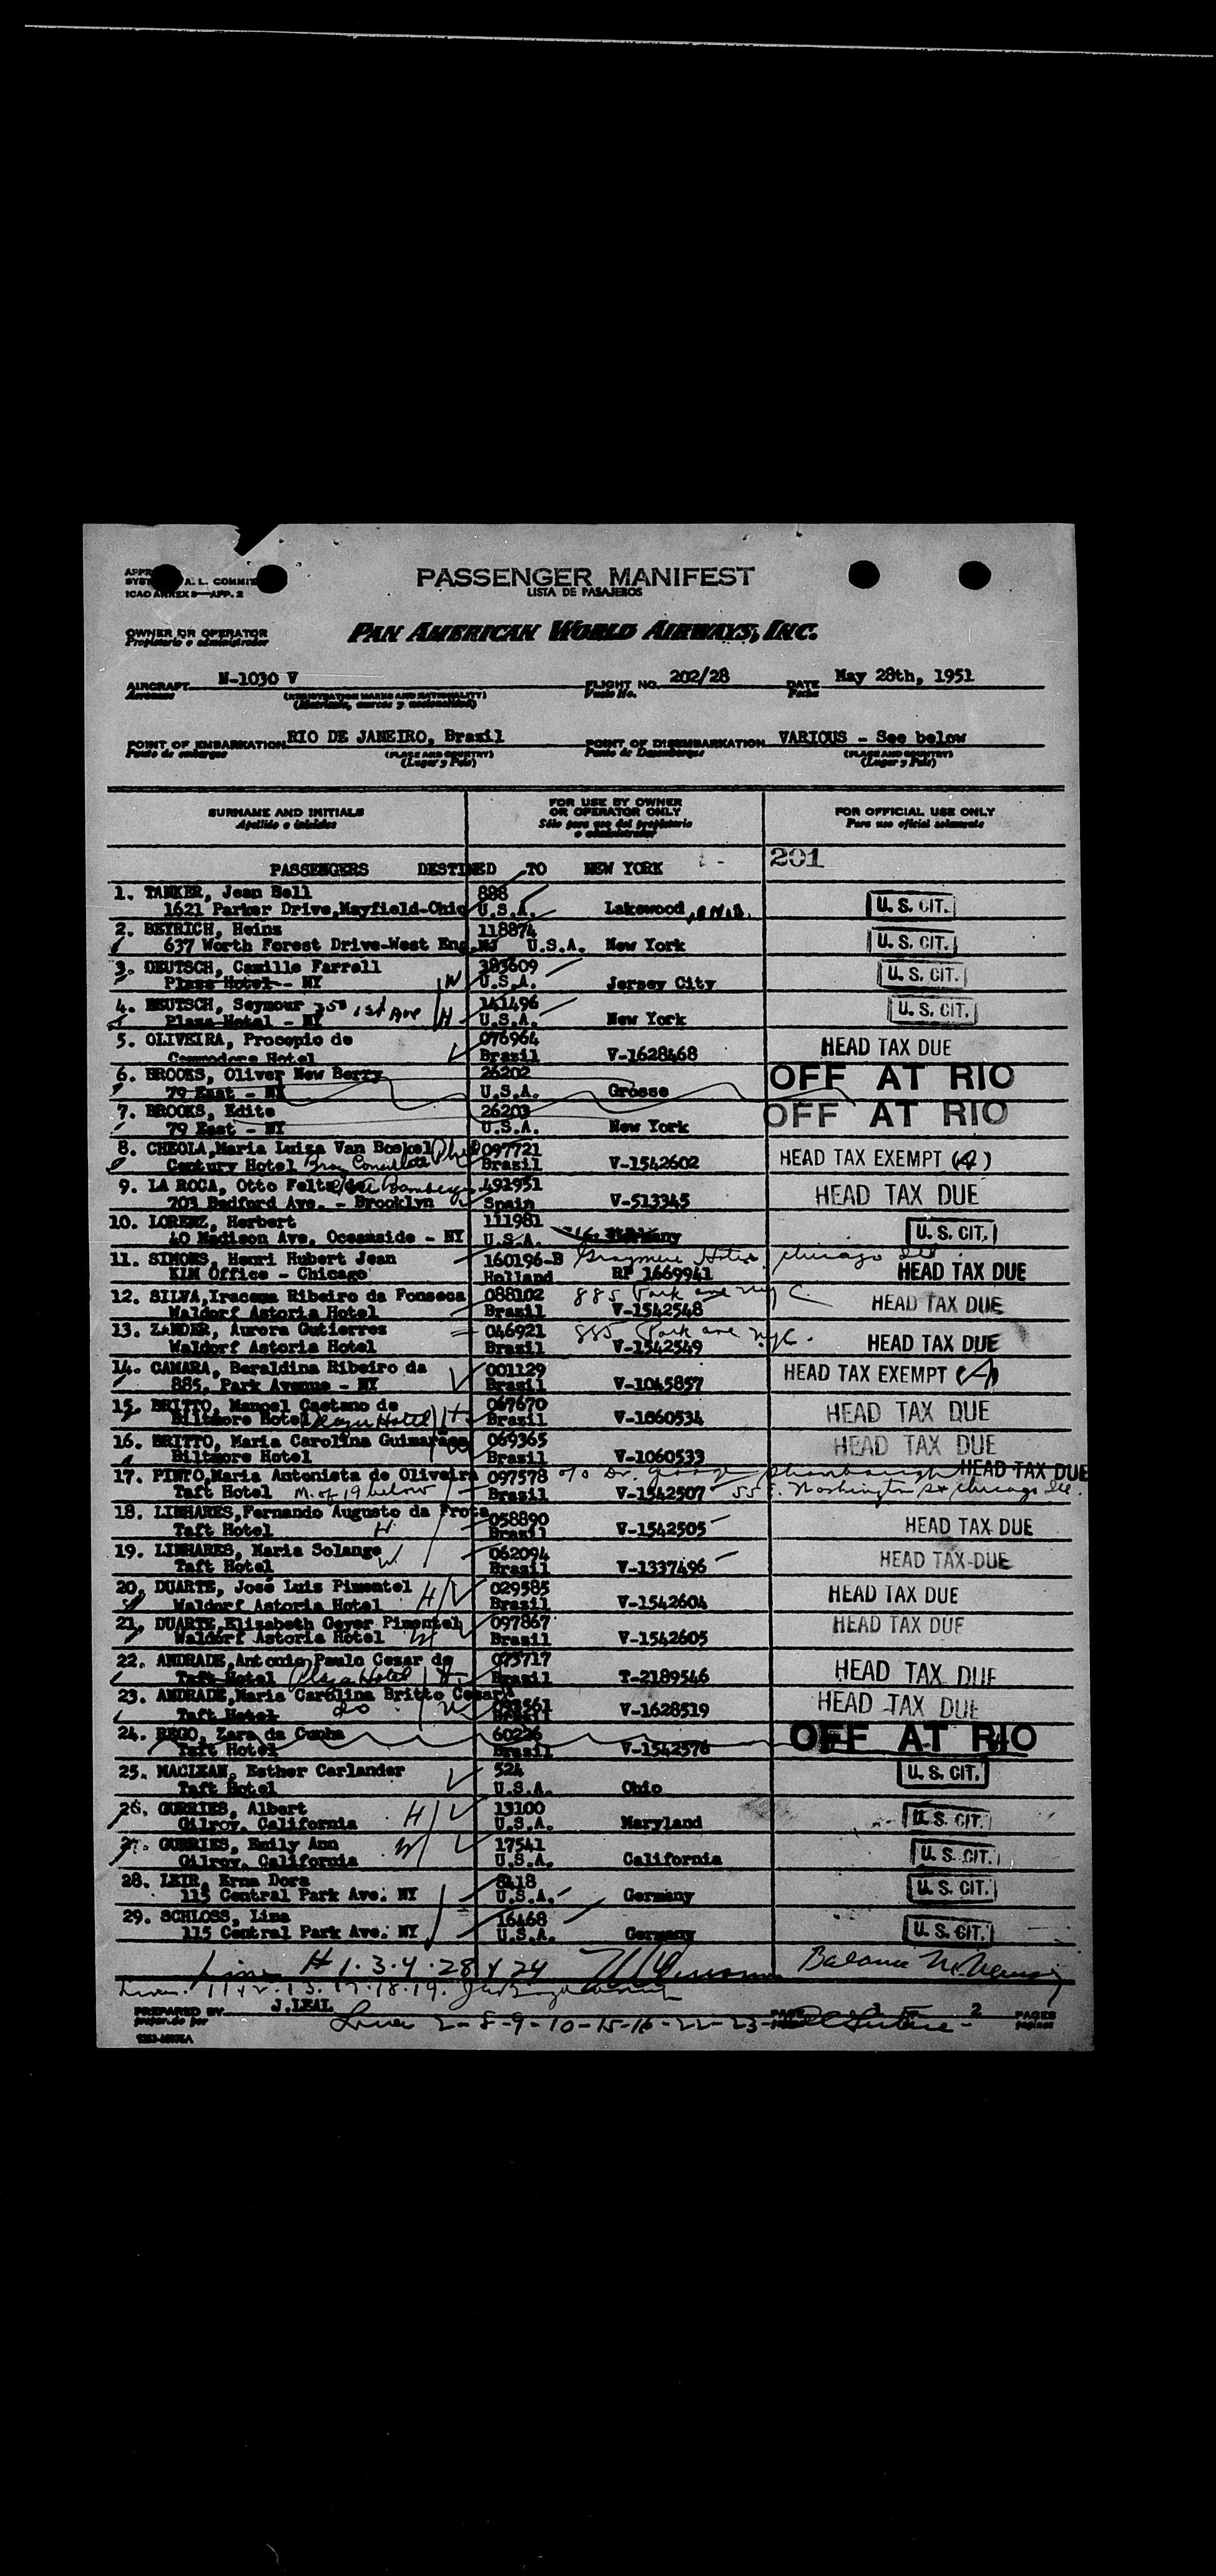 PASSENGER MANIFEST
LISTA DE PASAJEROS
A. L. COMMIT
ICAO ANNEX 9—APP. 2
OWNER OR OPERATOR
Propietario o administrador
PAN AMERICAN WORLD AIRWAYS, INC.
AIRCRAFT N-1030 V FLIGHT NO. 202/28 DATE May 28th, 1951
Aeronave (REGISTRATION MARKS AND NATIONALITY) Vuelo No. Fecha
(Matrícula, marcas y nacionalidad)
POINT OF EMBARKATION RIO DE JANEIRO, Brazil POINT OF DISEMBARKATION VARIOUS - See below
Punto de embarque (PLACE AND COUNTRY) Punto de Desembarque (PLACE AND COUNTRY)
(Lugar y País) (Lugar y País)
SURNAME AND INITIALS FOR USE BY OWNER OR OPERATOR ONLY FOR OFFICIAL USE ONLY
Apellido e iniciales Sólo para uso del propietario o administrador Para uso oficial solamente
PASSENGERS DESTINED TO NEW YORK 201
1. TANKER, Jean Bell 898
1621 Parker Drive,Mayfield-Ohio U.S.A. Lakewood U. S. CIT.
2. BEYRICH, Heinz 118874
637 Worth Forest Drive-West Eng.NJ U.S.A. New York U. S. CIT.
3. DEUTSCH, Camille Farrell 383609
Plaza Hotel - NY W U.S.A. Jersey City U. S. CIT.
4. DEUTSCH, Seymour 350 1st Ave 141496
Plaza Hotel - NY H U.S.A. New York U. S. CIT.
5. OLIVEIRA, Procopio de 076964
Commodore Hotel Brazil V-1628468 HEAD TAX DUE
6. BROOKS, Oliver New Berry 26202 OFF AT RIO
79 East - NY U.S.A. Grosse
7. BROOKS, Edite 26203 OFF AT RIO
79 East - NY U.S.A. New York
8. CHEOLA,Maria Luiza Van Boekel 097721
Century Hotel Brazil V-1542602 HEAD TAX EXEMPT (A)
9. LA ROCA, Otto Felts de 491951
703 Bedford Ave. - Brooklyn Spain V-513345 HEAD TAX DUE
10. LORENZ, Herbert 111981
40 Madison Ave. Oceanside - NY U.S.A. Germany U. S. CIT.
11. SIMONS, Henri Hubert Jean 160196-B Chicago Ill
KLM Office - Chicago Holland RP 1669941 HEAD TAX DUE
12. SILVA,Iracema Ribeiro da Fonseca 088102 885 Park ave NYC.
Waldorf Astoria Hotel Brazil V-1542548 HEAD TAX DUE
13. ZANDER, Aurora Gutierres 046921 885 Park ave NYC.
Waldorf Astoria Hotel Brazil V-1542549 HEAD TAX DUE
14. CAMARA, Beraldina Ribeiro da 001129
885, Park Avenue - NY Brazil V-1045857 HEAD TAX EXEMPT (A)
15. BRITTO, Manoel Caetano de 067670
Biltmore Hotel Plaza Hotel H Brazil V-1060534 HEAD TAX DUE
16. BRITTO, Maria Carolina Guimarães 069365
Biltmore Hotel Brazil V-1060533 HEAD TAX DUE
17. PINTO,Maria Antonieta de Oliveira 097578 c/o Dr. George HEAD TAX DUE
Taft Hotel M. of 19 below Brazil V-1542507 55 E. Washington St Chicago Ill.
18. LINHARES,Fernando Augusto da Frota 058890
Taft Hotel H Brazil V-1542505 HEAD TAX DUE
19. LINHARES, Maria Solange 062094
Taft Hotel W Brazil V-1337496 HEAD TAX DUE
20. DUARTE, José Luis Pimentel 029585
Waldorf Astoria Hotel H Brazil V-1542604 HEAD TAX DUE
21. DUARTE,Elizabeth Geyer Pimentel 097867
Waldorf Astoria Hotel W Brazil V-1542605 HEAD TAX DUE
22. ANDRADE,Antonio Paulo Cesar de 073717
Taft Hotel Plaza Hotel H. Brazil T-2189546 HEAD TAX DUE
23. ANDRADE,Maria Carolina Britto Cesar
Taft Hotel do W Brazil V-1628519 HEAD TAX DUE
24. REGO, Zara da Cunha 60226 OFF AT RIO
Taft Hotel Brazil V-1542576
25. MACLEAN, Esther Carlander 524
Taft Hotel U.S.A. Ohio U. S. CIT.
26. GURRIES, Albert 13100
Gilroy, California H U.S.A. Maryland U. S. CIT.
27. GURRIES, Emily Ann 17541
Gilroy, California W U.S.A. California U. S. CIT.
28. LEIR, Erna Dora 8418
115 Central Park Ave. NY U.S.A. Germany U. S. CIT.
29. SCHLOSS, Lina 16468
115 Central Park Ave. NY U.S.A. Germany U. S. CIT.
Line # 1.3.4.28 Balance
Lines. 11.12.13.17.18.19.
PREPARED BY J.LEAL PAGE 2 PAGES
Lines 2-8-9-10-15-16-22-23-